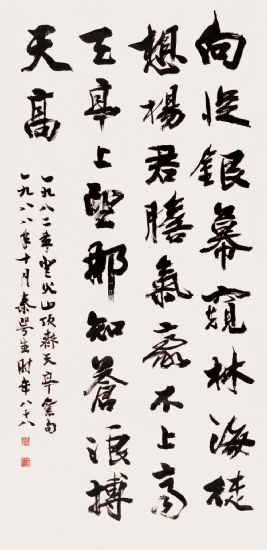 向從銀幕窺林海徒
想楊君膽氣豪不上高
天亭上望那知蒼浪搏
天高
一九八二年登火山頂天亭舊句
一九八八年十月秦咢生時年八十八